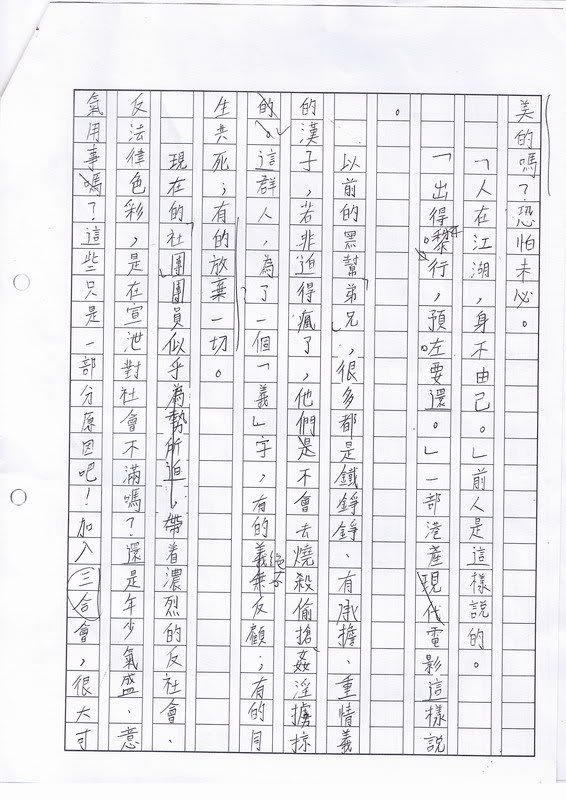 美的嗎？恐怕未必。
「人在江湖，身不由己。」前人是這樣說的。
「出得嚟行，預左要還。」一部港產現代電影這樣說
。
以前的黑幫弟兄，很多都是鐵錚錚、有承擔、重情義
的漢子，若非迫得瘋了，他們是不會去燒殺偷搶、姦淫擄掠
的。這群人，為了一個「義」字，有的義無反顧；有的同
生共死；有的放棄一切。
現在的社團團員似乎為勢所迫，帶着濃烈的反社會、
反法律色彩，是在宣泄對社會不滿嗎？還是年少氣盛、意
氣用事嗎？這些只是一部分原因吧！加入三合會，很大可